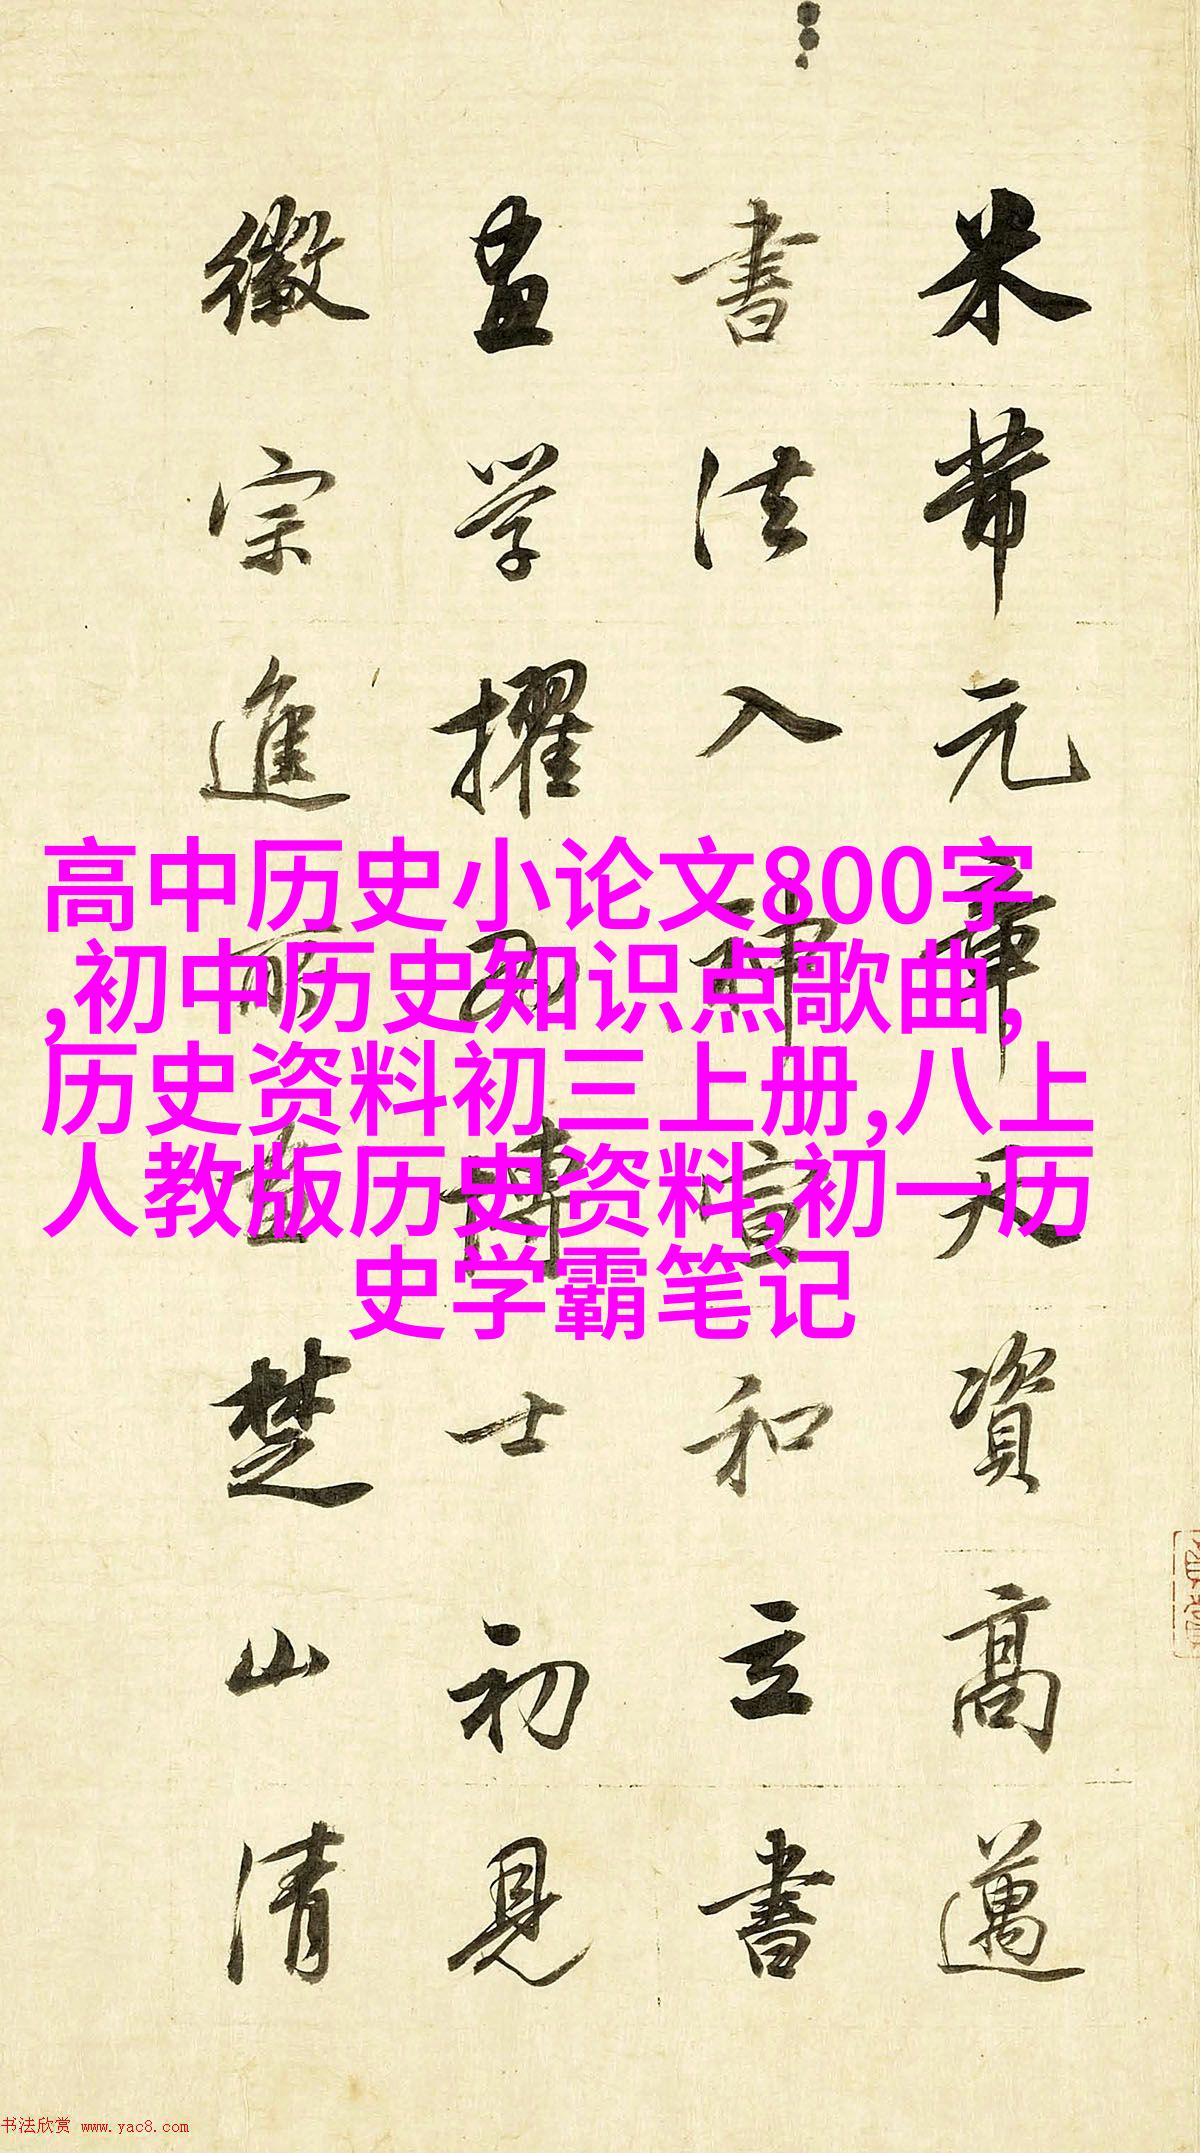 米芾元章天資高邁
書法入神宣和立書
畫学擢為博士初見
徽宗進所畫楚山清
高中历史小论文800字
,初中历史知识点歌曲,
历史资料初三上册,八上
人教版历史资料,初一历
史学霸笔记
书法欣赏 www.yac8.com